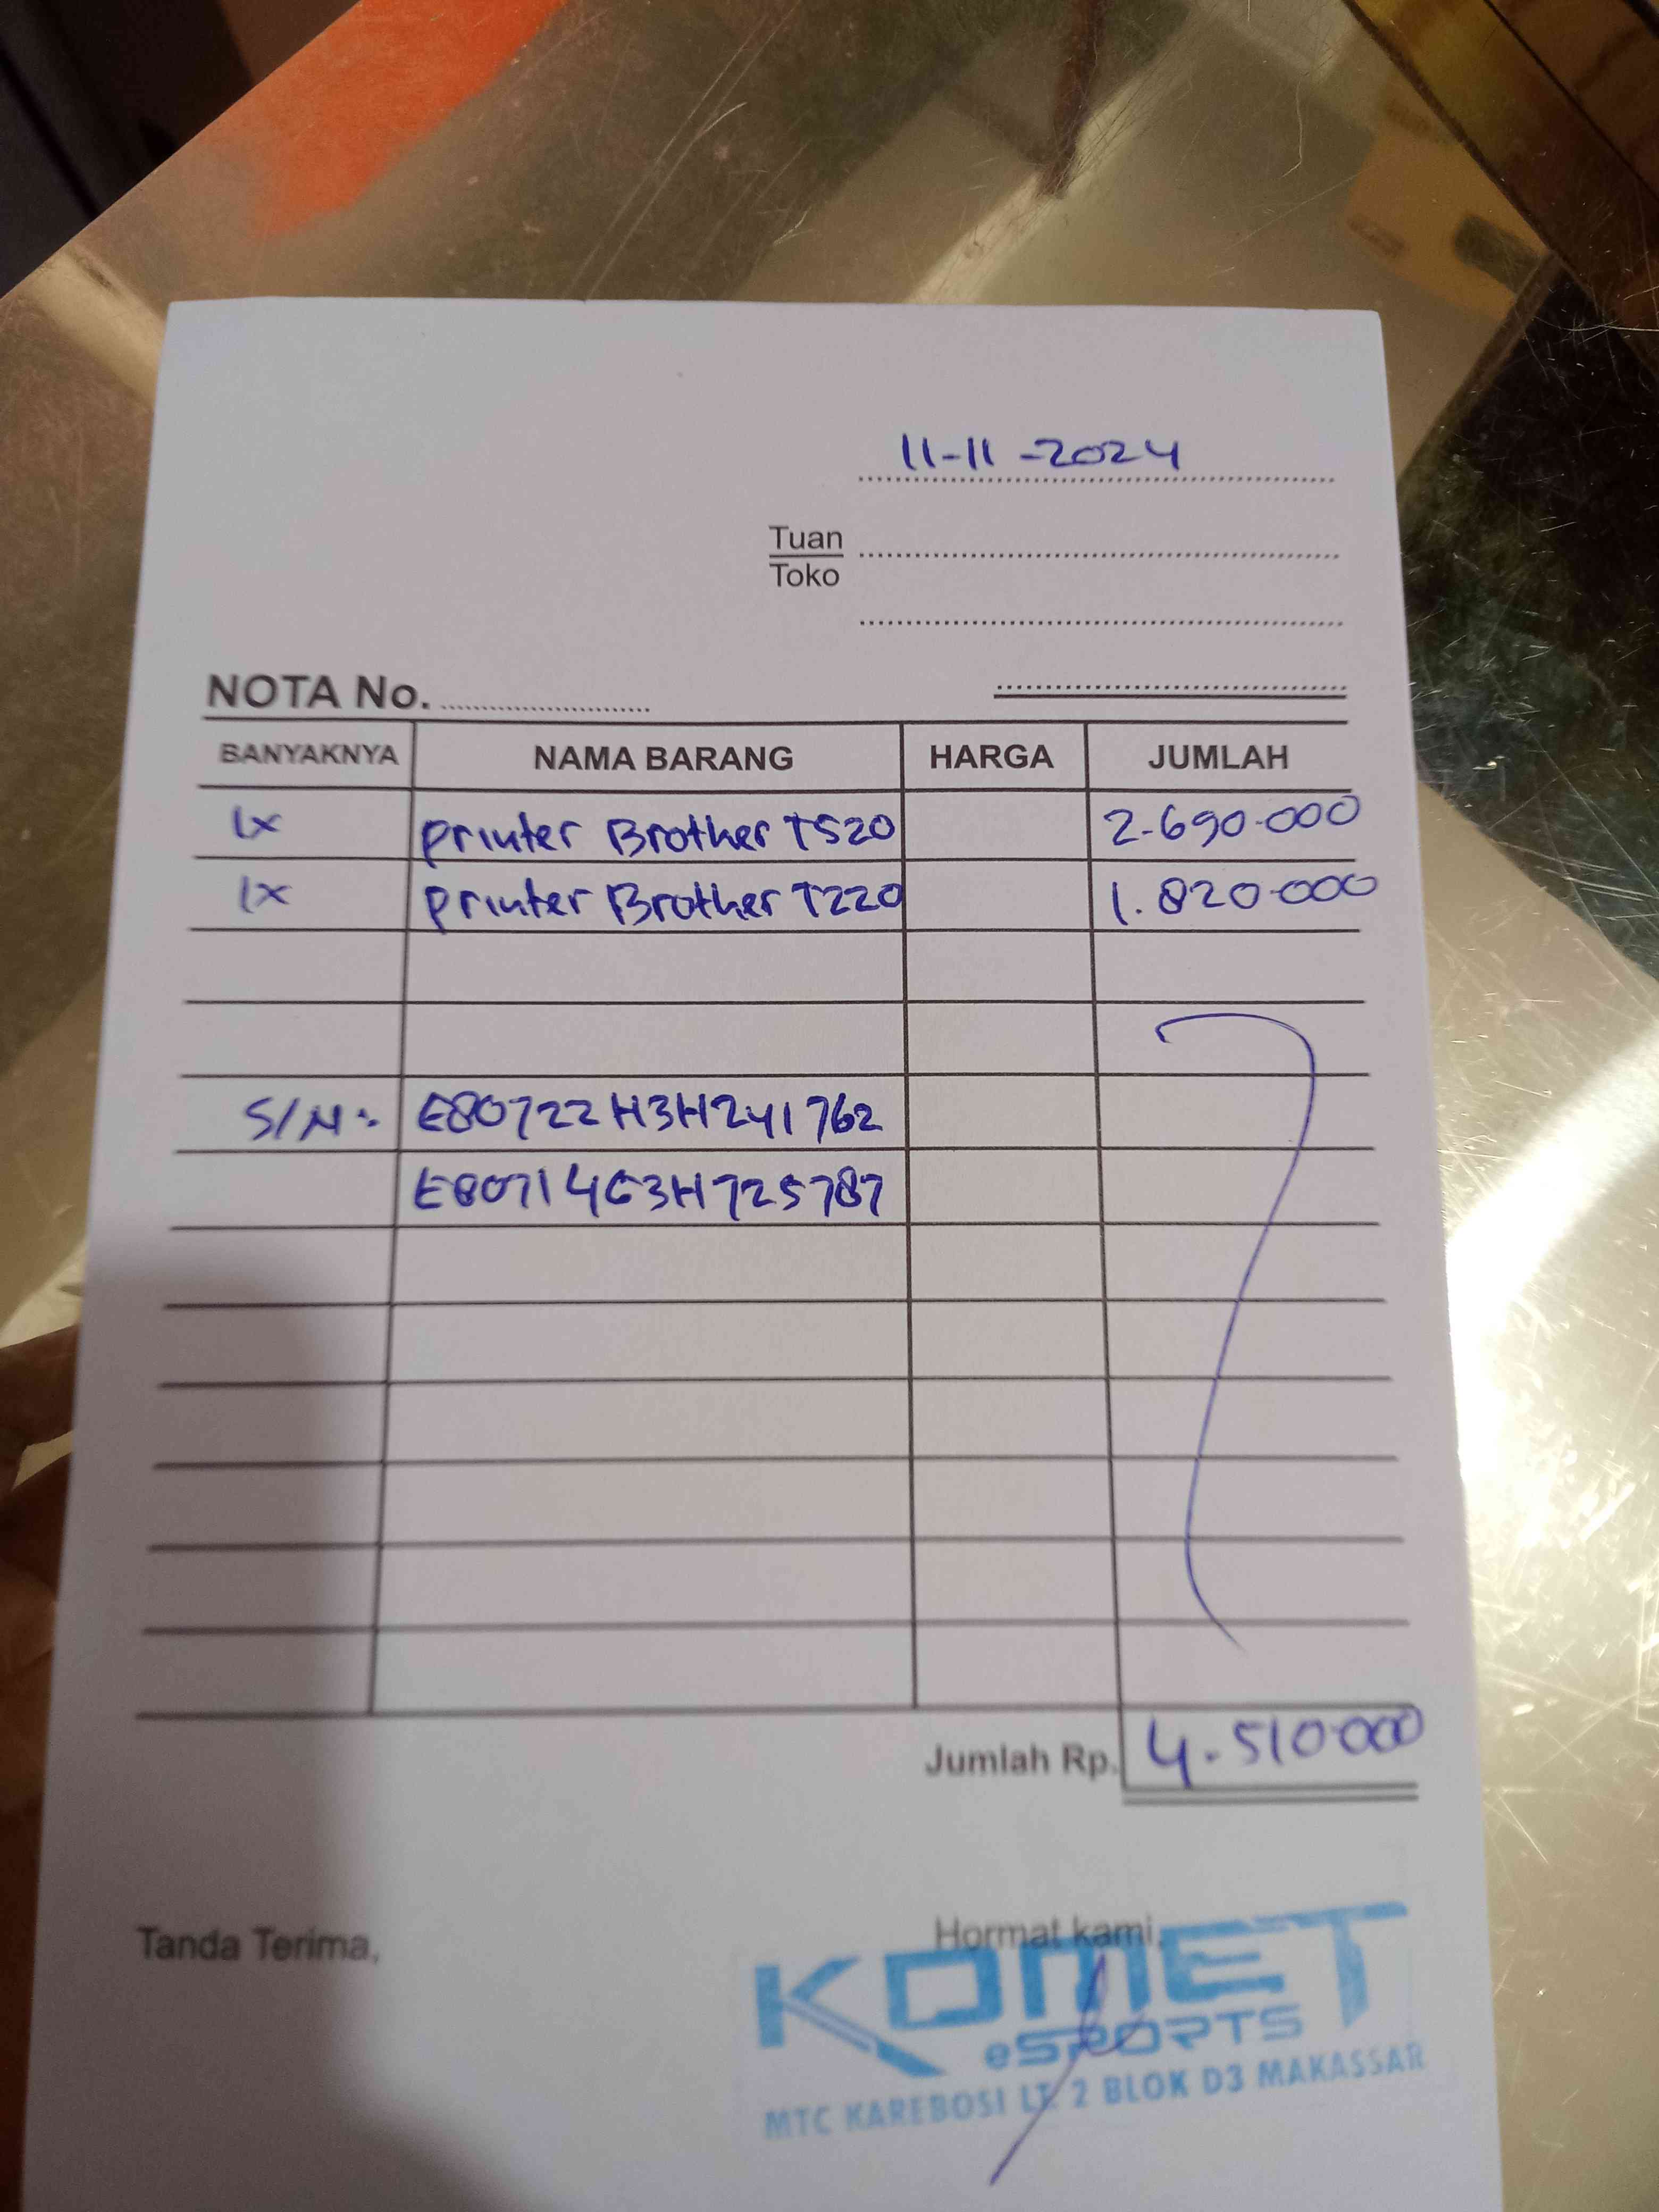 11-11-2024
Tuan
Toko
NOTA No.
BANYAKNYA NAMA BARANG HARGA JUMLAH
1x Printer Brother T520 2.690.000
1x Printer Brother T220 1.820.000
S/N: E80722H3H241762
E80714G3H725787
Jumlah Rp. 4.510.000
Tanda Terima, Hormat kami,
KOMET
eSPORTS
MTC KAREBOSI LT. 2 BLOK D3 MAKASSAR